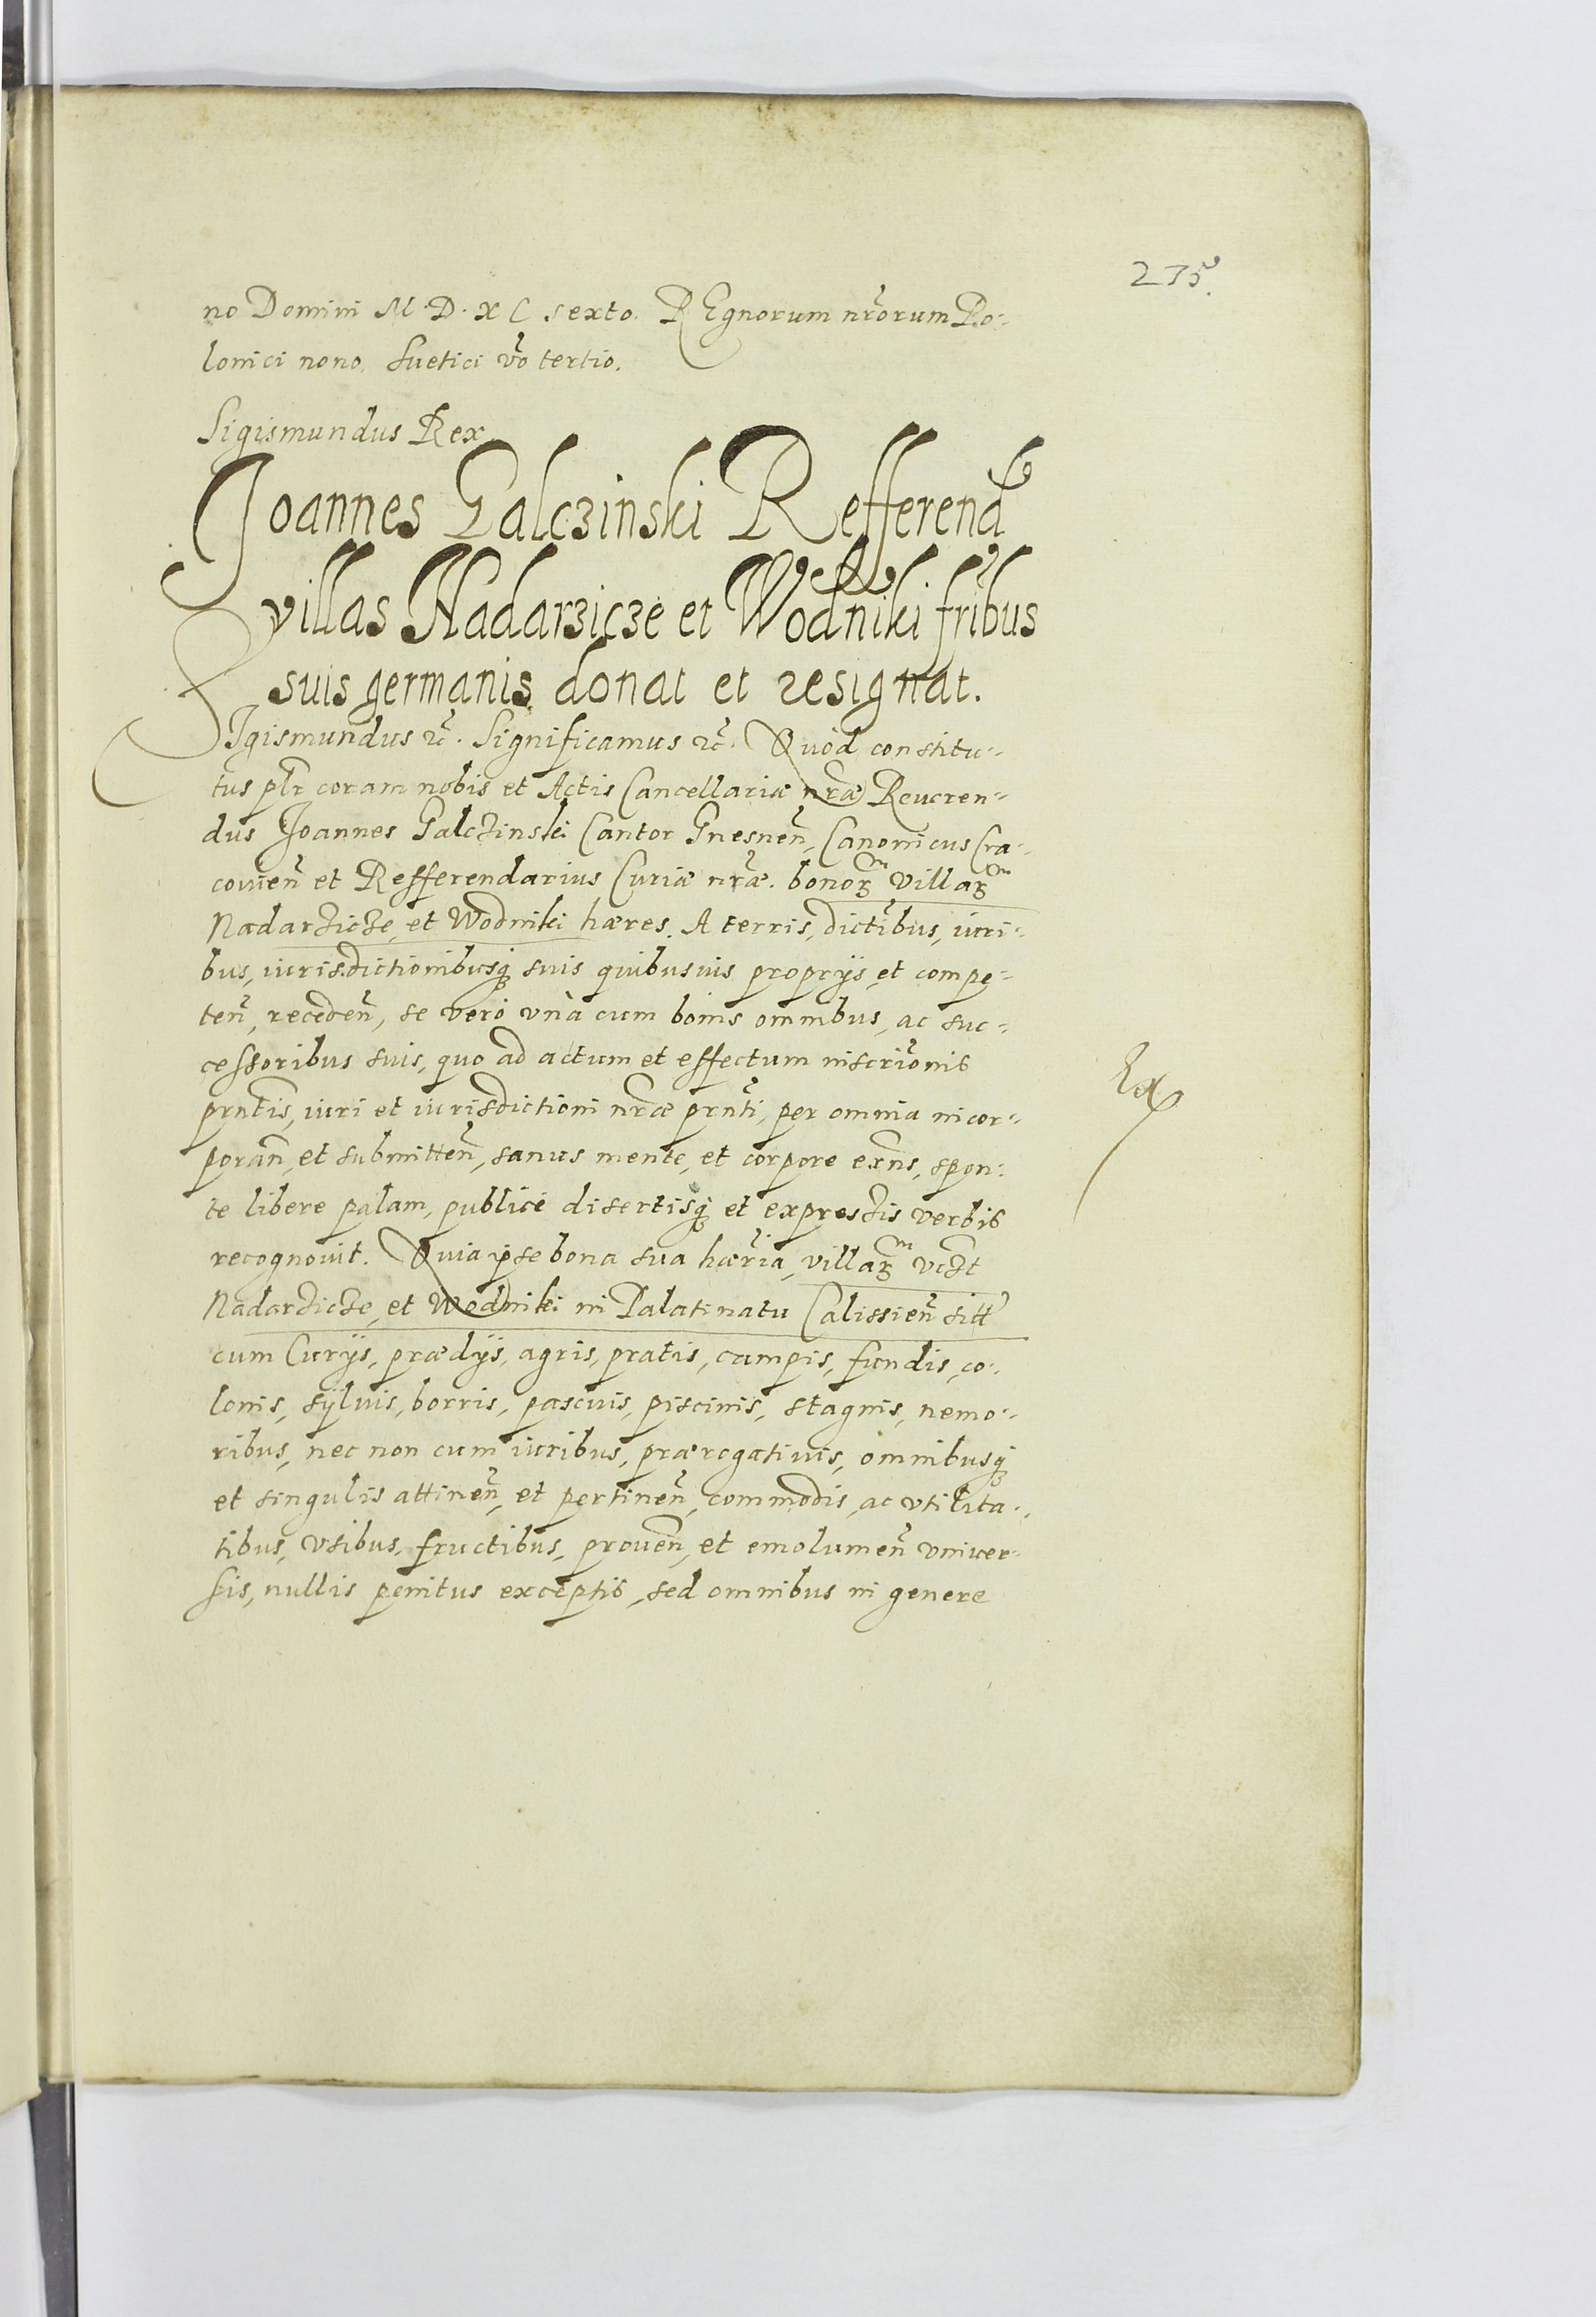 275.
no Domini M·D·XC sexto. REgnorum nr̃orum Po-
lonici nono, Suetici vo tertio.
Sigismundus Rex
Joannes Galczinski Refferend
villas Nadarzicze et Wodniki fribus
suis germanis donat et resignat.
SIgismundus &c. Significamus &c. Quod constitu-
tus plr coram nobis et Actis Cancellariæ nræ Reueren-
dus Joannes Galczinski Cantor Gnesnen, Canonicus Cra-
couien et Refferendarius Curiæ nræ. bonorum villarum
Nadarzicze, et Wodniki hæres. A terris, dictibus, iuri-
bus, iurisdictionibusq suis quibusuis proprijs et compe-
ten, receden, se vero vnà cum bonis omnibus, ac suc-
cessoribus suis, quo ad actum et effectum inscrionis
prntis, iuri et iurisdictioni nræ prnti, per omnia incor-
poran, et submitten, sanus mente, et corpore exns, spon-
te libere palam, publice disertisq et expressis verbis
recognouit. Quia ipse bona sua hæria, villarum vczt
Nadarzicze, et Wodniki in Palatinatu Calissien sitt
cum Curijs, prædijs, agris, pratis, campis, fundis, co-
lonis, syluis, borris, pascuis, piscinis, stagnis, nemo-
ribus, nec non cum iuribus, prærogatiuis, omnibusq
et singulis attinen, et pertinen, commodis, ac vtilita-
tibus, vsibus, fructibus, prouen, et emolumen vniuer-
sis, nullis penitus exceptis, sed omnibus in genere